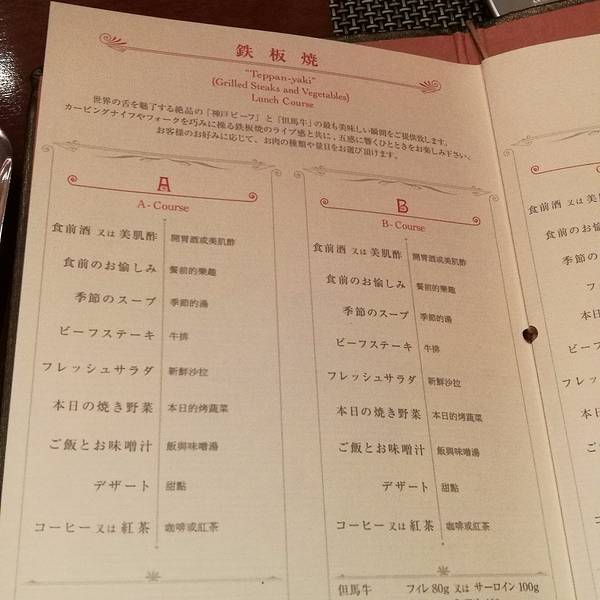 鉄板焼
"Teppan-yaki"
(Grilled Steaks and Vegetables)
Lunch Course
世界の舌を魅了する絶品の「神戸ビーフ」と「但馬牛」の最も美味しい瞬間をご提供致します。
カービングナイフやフォークを巧みに操る鉄板焼のライブ感と共に、五感に響くひとときをお楽しみ下さい。
お客様のお好みに応じて、お肉の種類や量目をお選び頂けます。
A
A - Course
食前酒 又は 美肌酢 開胃酒或美肌酢
食前のお愉しみ 餐前的樂趣
季節のスープ 季節的湯
ビーフステーキ 牛排
フレッシュサラダ 新鮮沙拉
本日の焼き野菜 本日的烤蔬菜
ご飯とお味噌汁 飯與味噌湯
デザート 甜點
コーヒー 又は 紅茶 咖啡或紅茶
B
B - Course
食前酒 又は 美肌酢 開胃酒或美肌酢
食前のお愉しみ 餐前的樂趣
季節のスープ 季節的湯
ビーフステーキ 牛排
フレッシュサラダ 新鮮沙拉
本日の焼き野菜 本日的烤蔬菜
ご飯とお味噌汁 飯與味噌湯
デザート 甜點
コーヒー 又は 紅茶 咖啡或紅茶
但馬牛 フィレ 80g 又は サーロイン 100g
食前酒
食前のお
季節の
フ
本日
ビーフ
フレッシ
本日の
ご飯と
デ
コーヒー